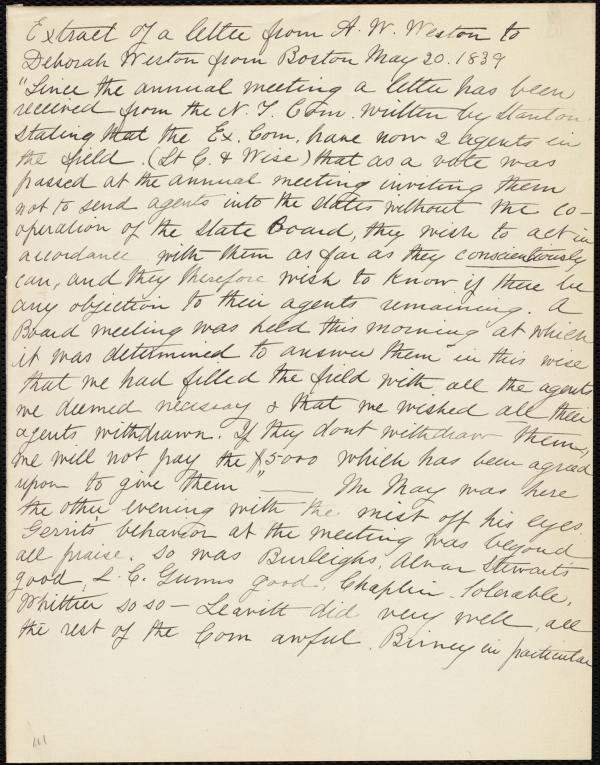 Extract of a letter from A. W. Weston to
Deborah Weston from Boston May 20. 1839
"Since the annual meeting a letter has been
received from the N. Y. Com. written by Stanton
stating that the Ex. Com. have now 2 agents in
the field. (St C. & Wise) that as a vote was
passed at the annual meeting inviting them
not to send agents into the states without the co-
operation of the State Board, they wish to act in
accordance with them as far as they conscientiously
can, and they therefore wish to know if there be
any objection to their agents remaining. A
Board meeting was held this morning at which
it was determined to answer them in this wise
that we had filled the field with all the agents
we deemed necessary & that we wished all their
agents withdrawn. If they dont withdraw them,
we will not pay the $5000 which has been agreed
upon to give them" — Mr May was here
the other evening with the mist off his eyes
Gerrit's behavior at the meeting was beyond
all praise. So was Burleighs, Alvan Stewarts
good, L. C. Gunns good, Chaplin tolerable,
Whittier so so – Leavitt did very well, all
the rest of the Com awful. Birney in particular
111